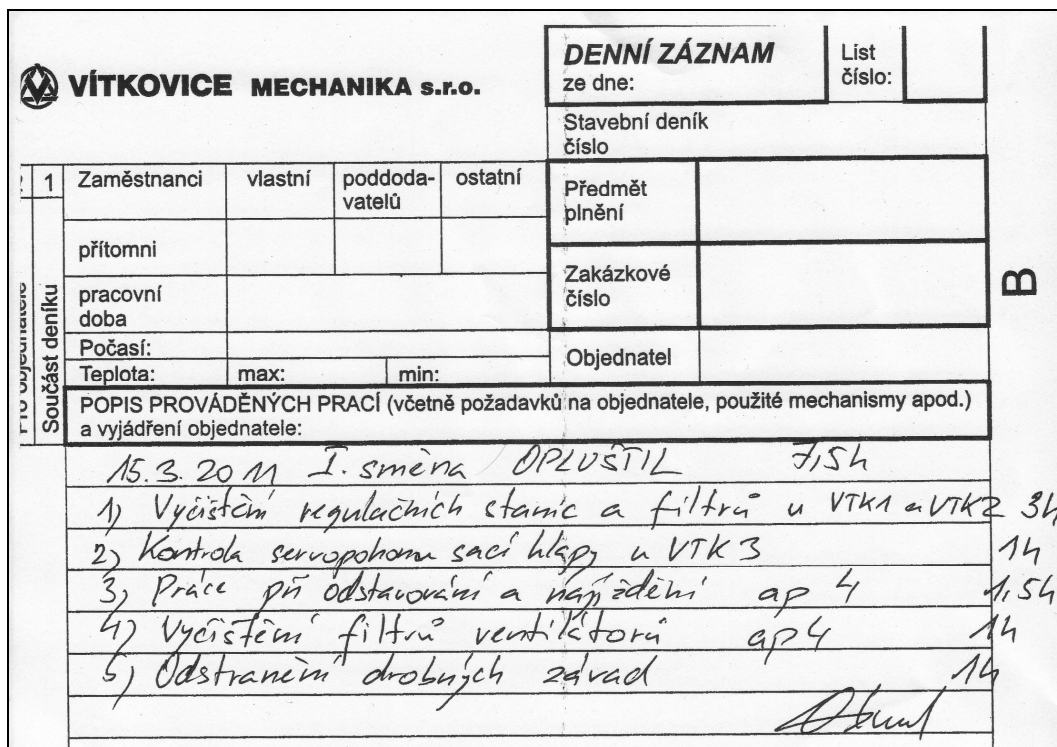 VÍTKOVICE MECHANIKA s.r.o.
DENNÍ ZÁZNAM
ze dne:
List
číslo:
Stavební deník
číslo
1
Zaměstnanci
vlastní
poddoda-
vatelů
ostatní
Předmět
plnění
přítomni
Zakázkové
číslo
B
pracovní
doba
Součást deníku
Počasí:
Objednatel
Teplota:
max:
min:
POPIS PROVÁDĚNÝCH PRACÍ (včetně požadavků na objednatele, použité mechanismy apod.)
a vyjádření objednatele:
15.3.2011 I. směna OPLUŠTIL 7,5h
1) Vyčištění regulačních stanic a filtrů u VTK1 a VTK2 3h
2) Kontrola servopohonu sací klapy u VTK3 1h
3) Práce při odstavování a najíždění ap 4 1,5h
4) Vyčištění filtrů ventilátorů ap4 1h
5) Odstranění drobných závad 1h